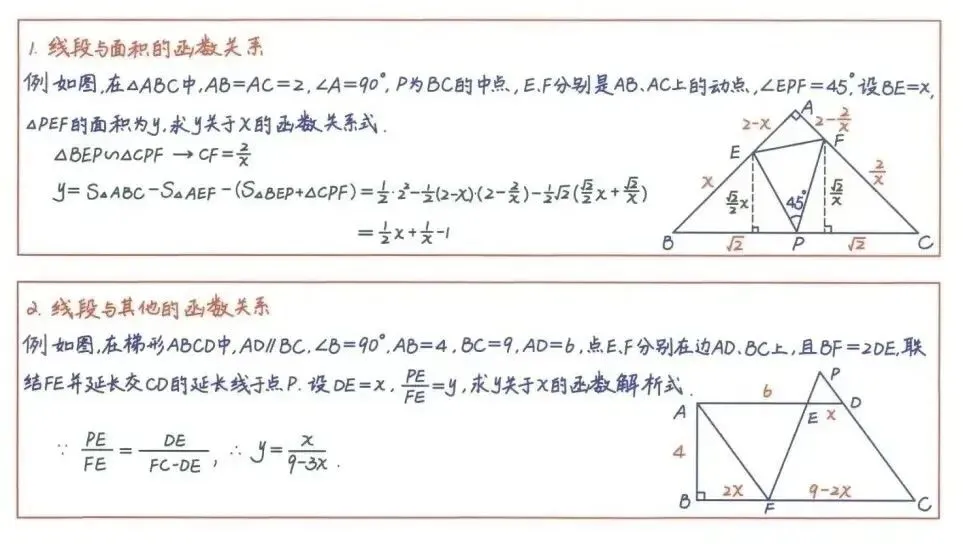 1. 线段与面积的函数关系
例 如图,在△ABC中,AB=AC=2,∠A=90°,P为BC的中点,E.F分别是AB、AC上的动点,∠EPF=45°,设BE=x,
△PEF的面积为y,求y关于x的函数关系式.
△BEP∽△CPF → CF=2/x
y=S△ABC-S△AEF-(S△BEP+△CPF)=1/2·2²-1/2(2-x)·(2-2/x)-1/2√2(√2/2x+√2/x)
=1/2x+1/x-1
A
2-x
2-2/x
E
F
x
2/x
√2/2x
45°
√2/x
B
√2
P
√2
C
2. 线段与其他的函数关系
例 如图,在梯形ABCD中,AD∥BC,∠B=90°,AB=4,BC=9,AD=6,点E、F分别在边AD、BC上,且BF=2DE,联
结FE并延长交CD的延长线于点P. 设DE=x,PE/FE=y,求y关于x的函数解析式.
∵ PE/FE=DE/FC-DE, ∴ y=x/9-3x.
P
6
A
E
x
D
4
B
2x
F
9-2x
C